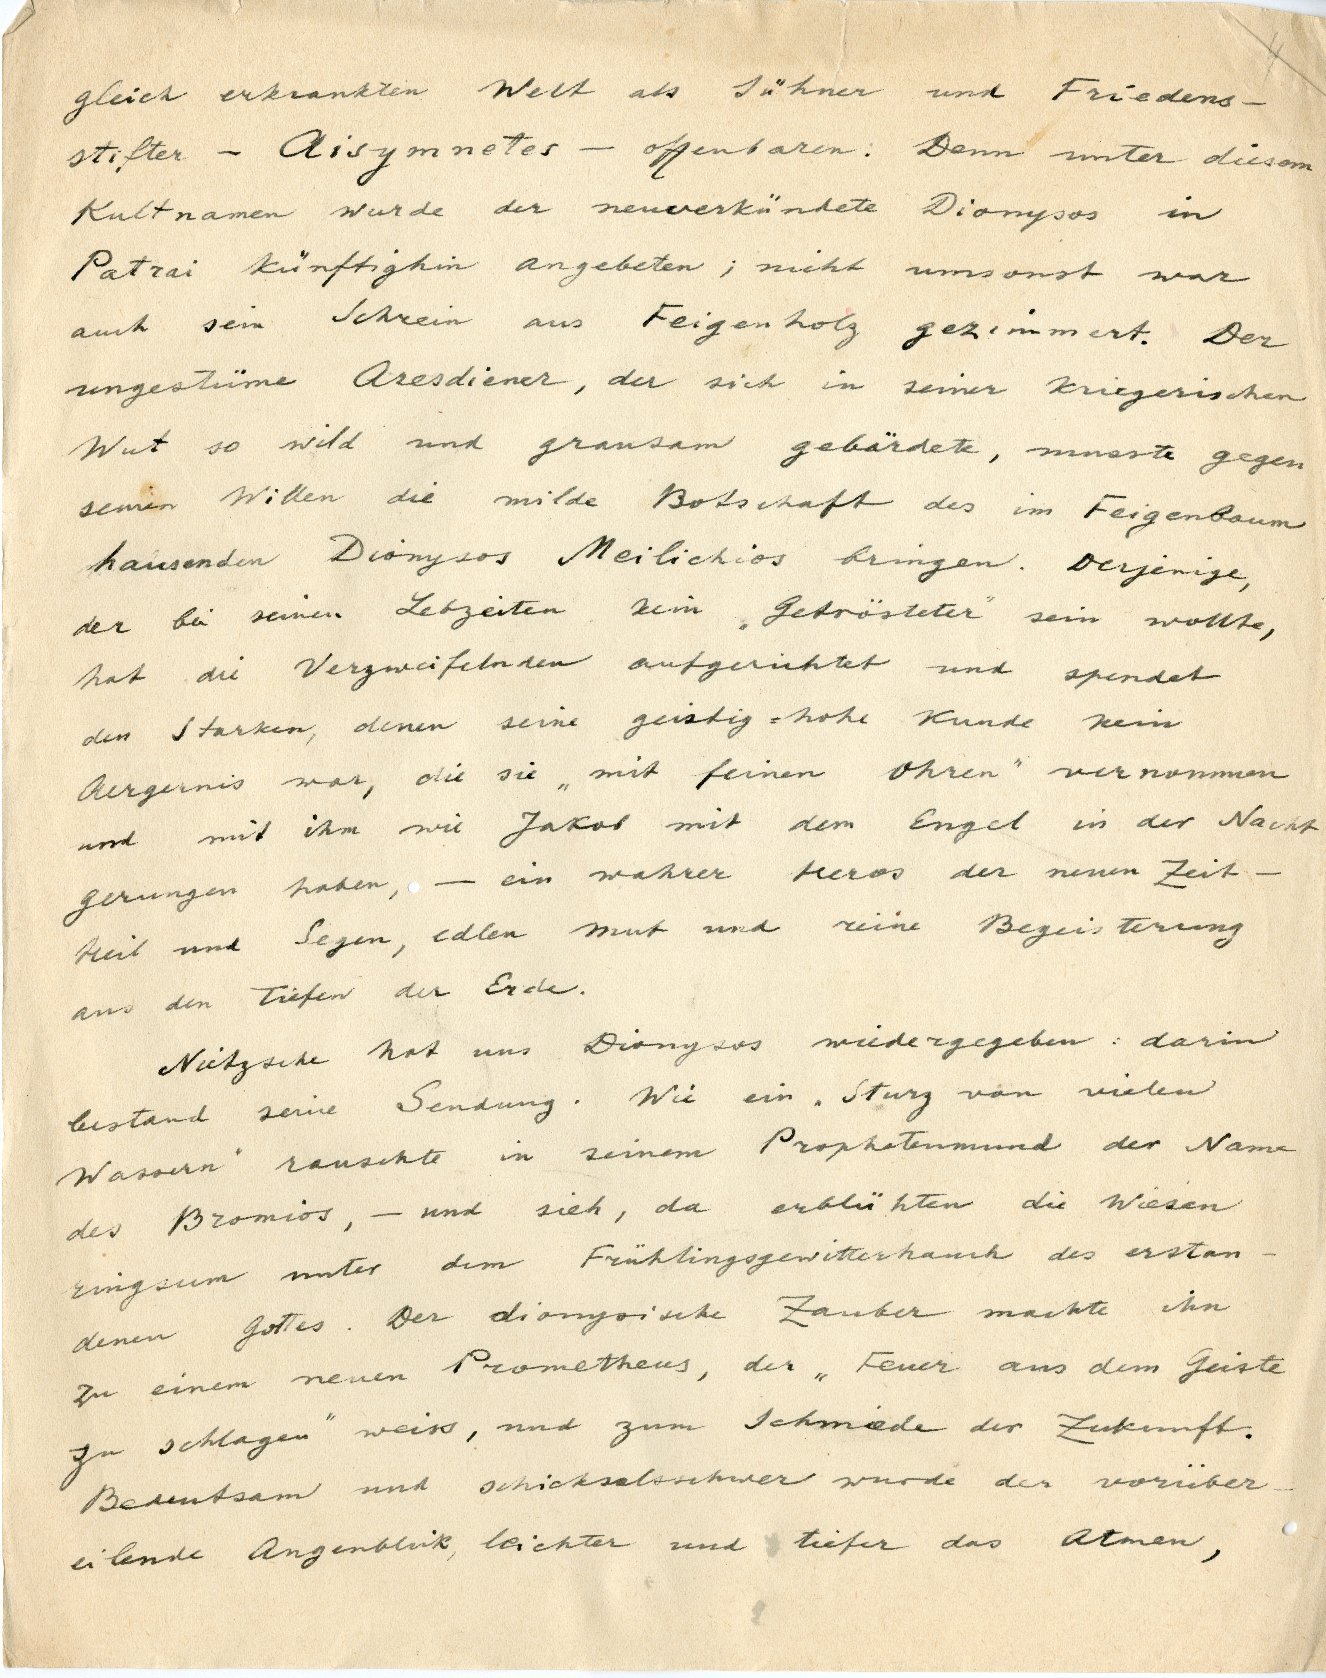 4
gleich erkrankten Welt als Sühner und Friedens-
stifter - Aisymnetes - offenbaren: Denn unter diesem
Kultnamen wurde der neuverkündete Dionysos in
Patrai künftighin angebeten; nicht umsonst war
auch sein Schrein aus Feigenholz gezimmert. Der
ungestüme Aresdiener, der sich in seiner kriegerischen
Wut so wild und grausam gebärdete, musste gegen
seinen Willen die milde Botschaft des im Feigenbaum
hausenden Dionysos Meilichios bringen. Derjenige,
der bei seinen Lebzeiten kein „Getrösteter" sein wollte,
hat die Verzweifelnden aufgerichtet und spendet
den Starken, denen seine geistig=hohe Kunde kein
Aergernis war, die sie „mit feinen Ohren" vernommen
und mit ihm wie Jakob mit dem Engel in der Nacht
gerungen haben, — ein wahrer Heros der neuen Zeit —
Heil und Segen, edlen Mut und reine Begeisterung
aus den Tiefen der Erde.
Nietzsche hat uns Dionysos wiedergegeben: darin
bestand seine Sendung. Wie ein „Sturz von vielen
Wassern" rauschte in seinem Prophetenmund der Name
des Bromios, — und sieh, da erblühten die Wiesen
ringsum unter dem Frühlingsgewitterhauch des erstan-
denen Gottes. Der dionysische Zauber machte ihn
zu einem neuen Prometheus, der „Feuer aus dem Geiste
zu schlagen" weiss, und zum Schmiede der Zukunft.
Bedeutsam und schicksalsschwer wurde der vorüber-
eilende Augenblick, leichter und tiefer das Atmen,